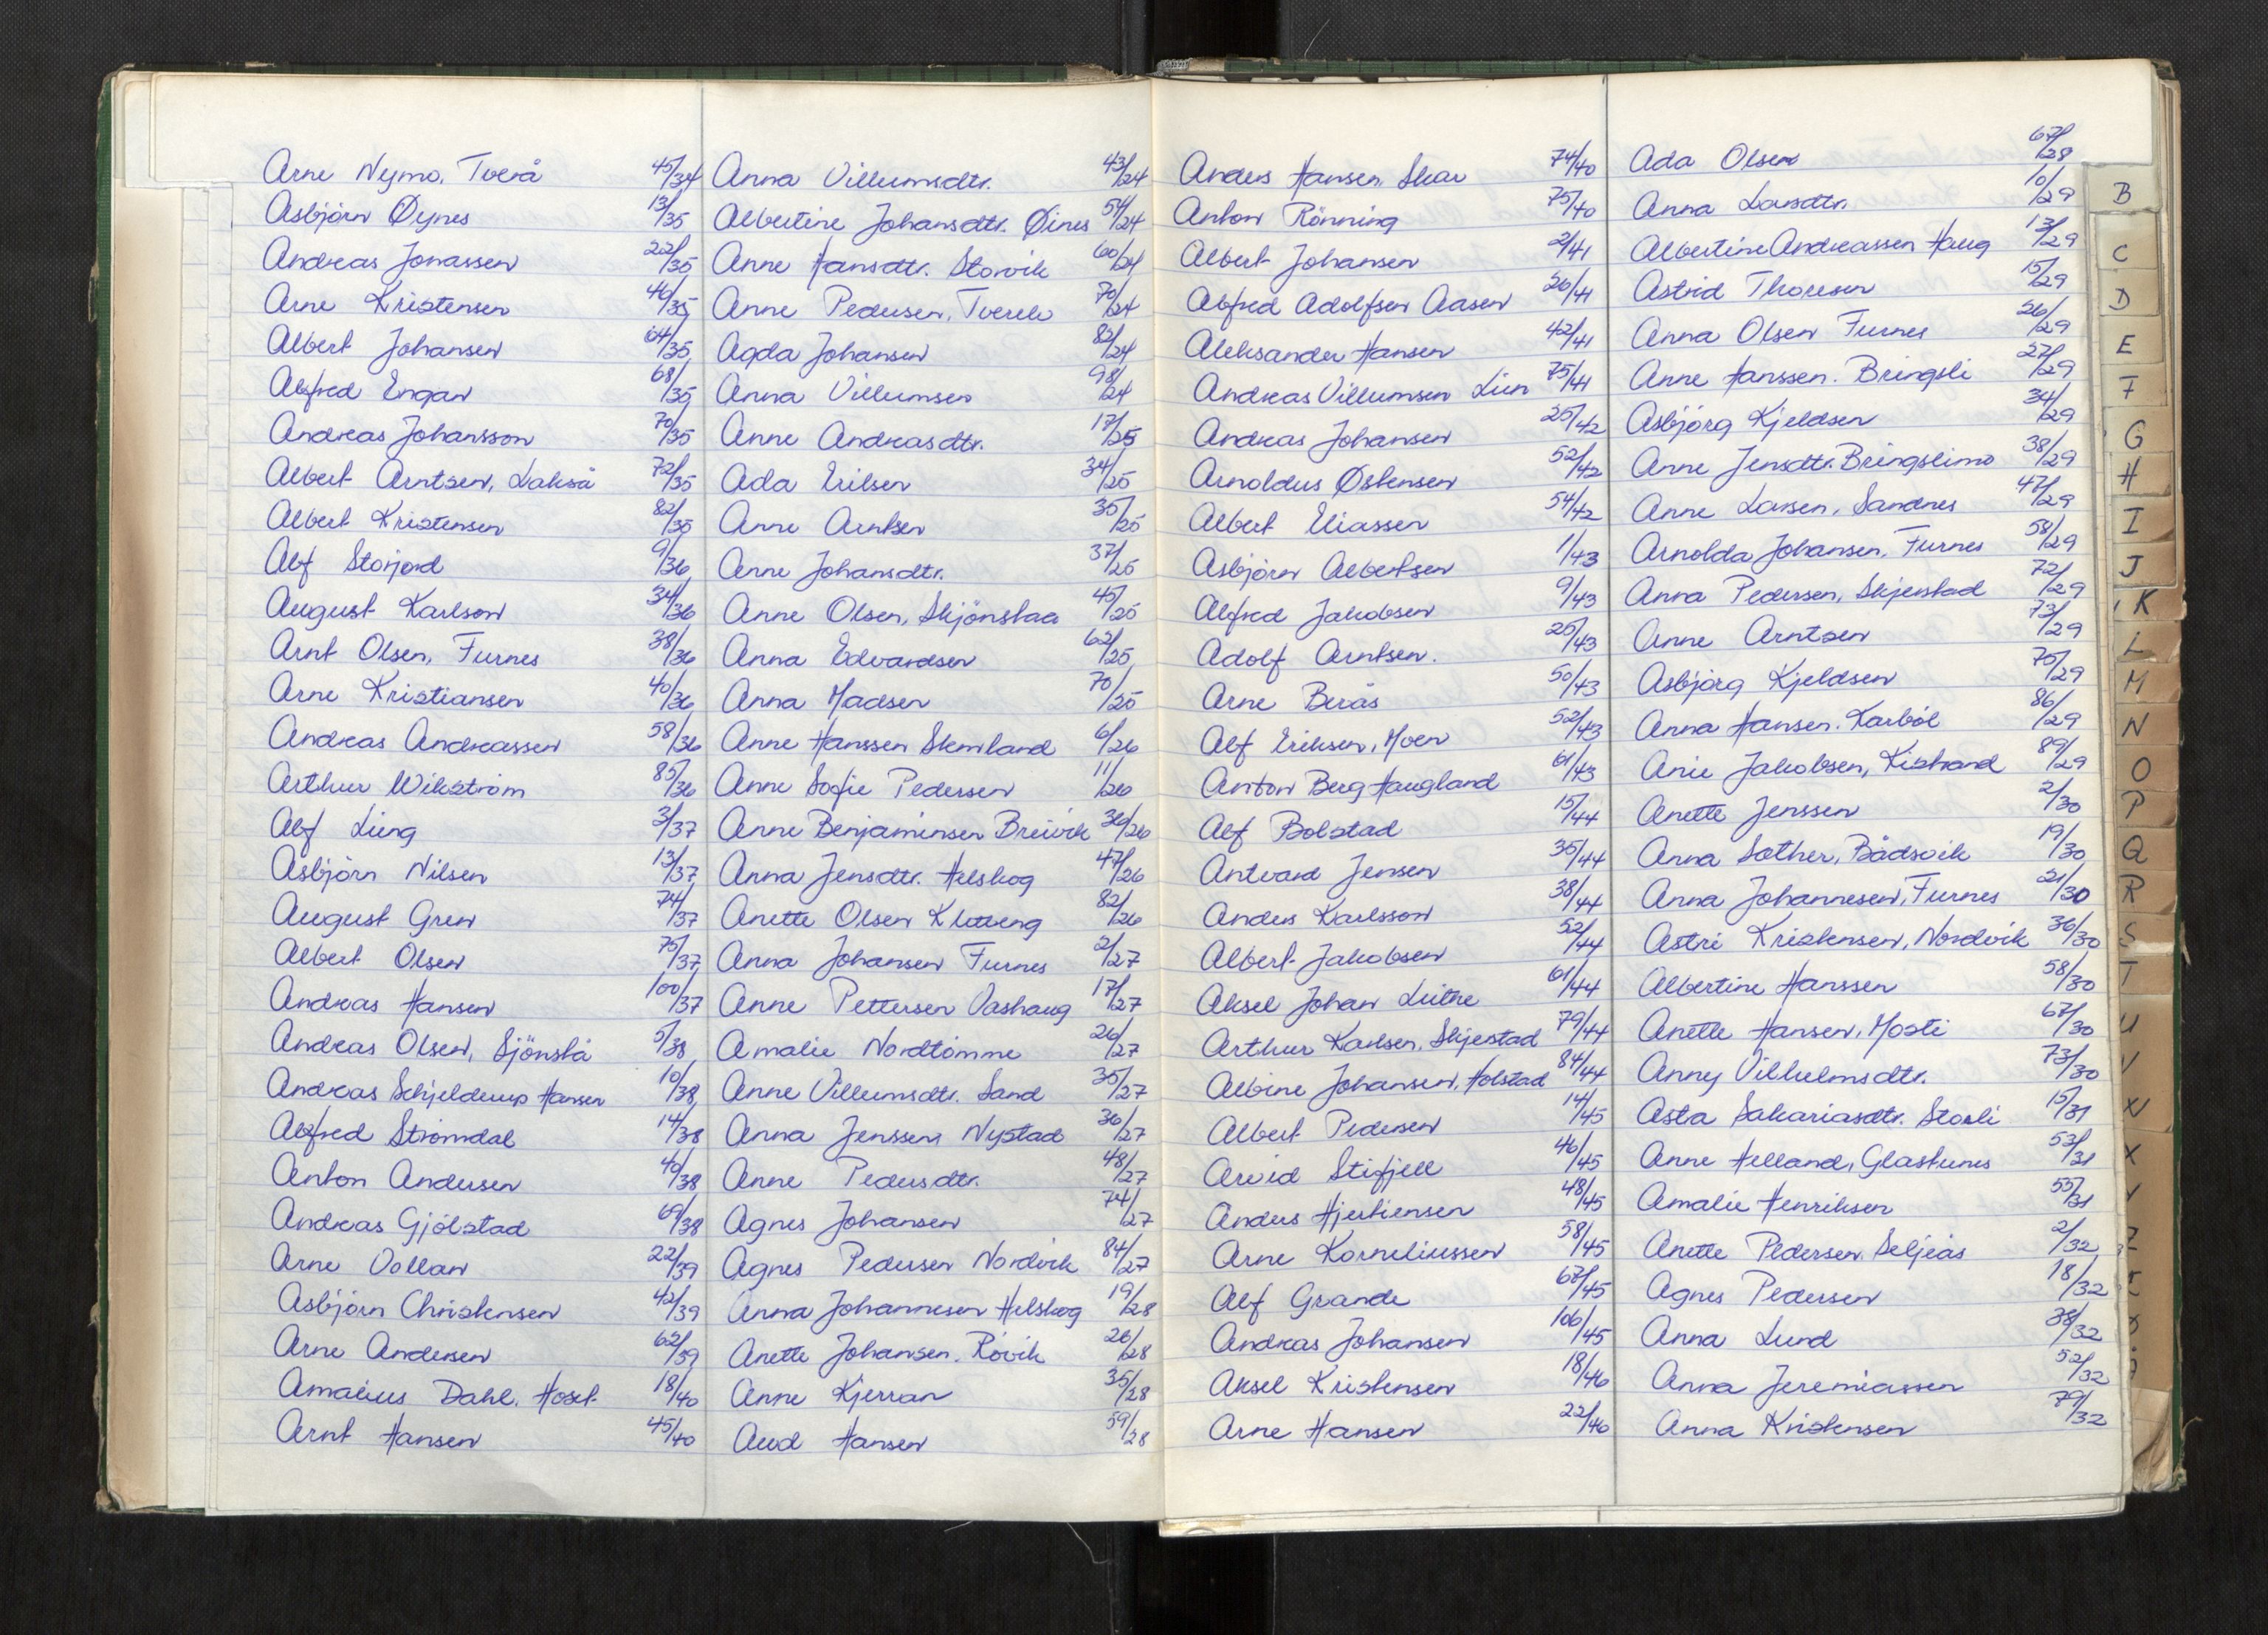 Arne Nymo, Tverå 45/34
Asbjörn Øynes 13/35
Andreas Jonassen 22/35
Arne Kristensen 46/35
Albert Johansen 64/35
Alfred Engan 68/35
Andreas Johansson 70/35
Albert Arntzen, Lakså 72/35
Albert Kristensen 82/35
Alf Storjord 9/36
August Karlson 34/36
Arnt Olsen, Furnes 38/36
Arne Kristiansen 40/36
Andreas Andreassen 58/36
Arthur Wikström 85/36
Alf Lüng 3/37
Asbjörn Nilsen 13/37
August Gren 74/37
Albert Olsen 75/37
Andreas Hansen 100/37
Andreas Olsen, Sjönstå 5/38
Andreas Schjelderup Hansen 10/38
Alfred Strömdal 14/38
Anton Andersen 40/38
Andreas Gjölstad 69/38
Arne Vollan 22/39
Asbjörn Christensen 42/39
Arne Andersen 62/39
Amalius Dahl, Hoset 18/40
Arnt Hansen 45/40
Anna Villumsdtr. 43/24
Albertine Johansdtr. Øines 54/24
Anne Hansdtr. Storvik 60/24
Anne Pedersen, Tverele 70/24
Agda Johansen 82/24
Anna Villumsen 98/24
Anne Andreasdtr. 17/25
Ada Eriksen 34/25
Anne Arntsen 35/25
Anne Johansdtr. 37/25
Anne Olsen, Skjönstaa 45/25
Anna Edvardsen 62/25
Anna Madsen 70/25
Anne Hanssen Skenland 6/26
Anne Sofie Pedersen 11/26
Anne Benjaminsen Breivik 36/26
Anna Jensdtr. Helskog 47/26
Anette Olsen Kletteng 82/26
Anna Johansen Furnes 2/27
Anne Pettersen Vashaug 17/27
Amalie Nordtömme 26/27
Anne Villumsdtr. Sand 35/27
Anna Jenssen Nystad 36/27
Anne Pedersdtr. 48/27
Agnes Johansen 74/27
Agnes Pedersen Nordvik 84/27
Anna Johannesen Helskog 19/28
Anette Johansen, Røvik 26/28
Anne Kjerran 35/28
Aud Hansen 59/28
Anders Hansen, Skar 74/40
Anton Rönning 75/40
Albert Johansen 2/41
Alfred Adolfsen Aasen 26/41
Aleksander Hansen 42/41
Andreas Villumsen Lien 75/41
Andreas Johansen 25/42
Arnoldus Østensen 52/42
Albert Eliassen 54/42
Asbjörn Albertsen 1/43
Alfred Jakobsen 9/43
Adolf Arntsen. 25/43
Arne Berås 50/43
Alf Eriksen, Moen 52/43
Anton Berg Haugland 61/43
Alf Bolstad 15/44
Antvard Jensen 35/44
Anders Karlsson 38/44
Albert Jakobsen 52/44
Aksel Johan Leithe 61/44
Arthur Karlsen, Skjerstad 79/44
Albine Johansen, Holstad 84/44
Albert Pedersen 14/45
Arvid Stifjell 46/45
Anders Hjertiensen 48/45
Arne Korneliussen 58/45
Alf Grande 67/45
Andreas Johansen 106/45
Aksel Kristensen 18/46
Arne Hansen 22/46
Ada Olsen 67/28
Anna Larsdtr. 10/29
Albertine Andreassen Haug 13/29
Astrid Thoresen 15/29
Anna Olsen Furnes 26/29
Anne Hanssen. Bringsli 27/29
Asbjörg Kjeldsen 34/29
Anne Jensdtr. Bringslimo 38/29
Anne Larsen, Sandnes 47/29
Arnolda Johansen, Furnes 58/29
Anna Pedersen, Skjerstad 72/29
Anne Arntzen 73/29
Asbjörg Kjeldsen 75/29
Anna Hansen. Karböl 86/29
Anie Jakobsen, Kistrand 89/29
Anette Jenssen 2/30
Anna Sæther, Bådsvik 19/30
Anna Johannesen, Furnes 21/30
Astri Kristensen, Nordvik 36/30
Albertine Hanssen 58/30
Anette Hansen, Mosti 67/30
Anny Vilhelmsdtr. 73/30
Asta Sakariasdtr. Storli 15/31
Anne Helland, Glastunes 53/31
Amalie Henriksen 55/31
Anette Pedersen, Seljeås 2/32
Agnes Pedersen 18/32
Anna Lund 38/32
Anna Jeremiassen 52/32
Anna Kristensen 79/32
B
C
D
E
F
G
H
I
J
K
L
M
N
O
P
Q
R
S
T
U
V
W
X
Y
Z